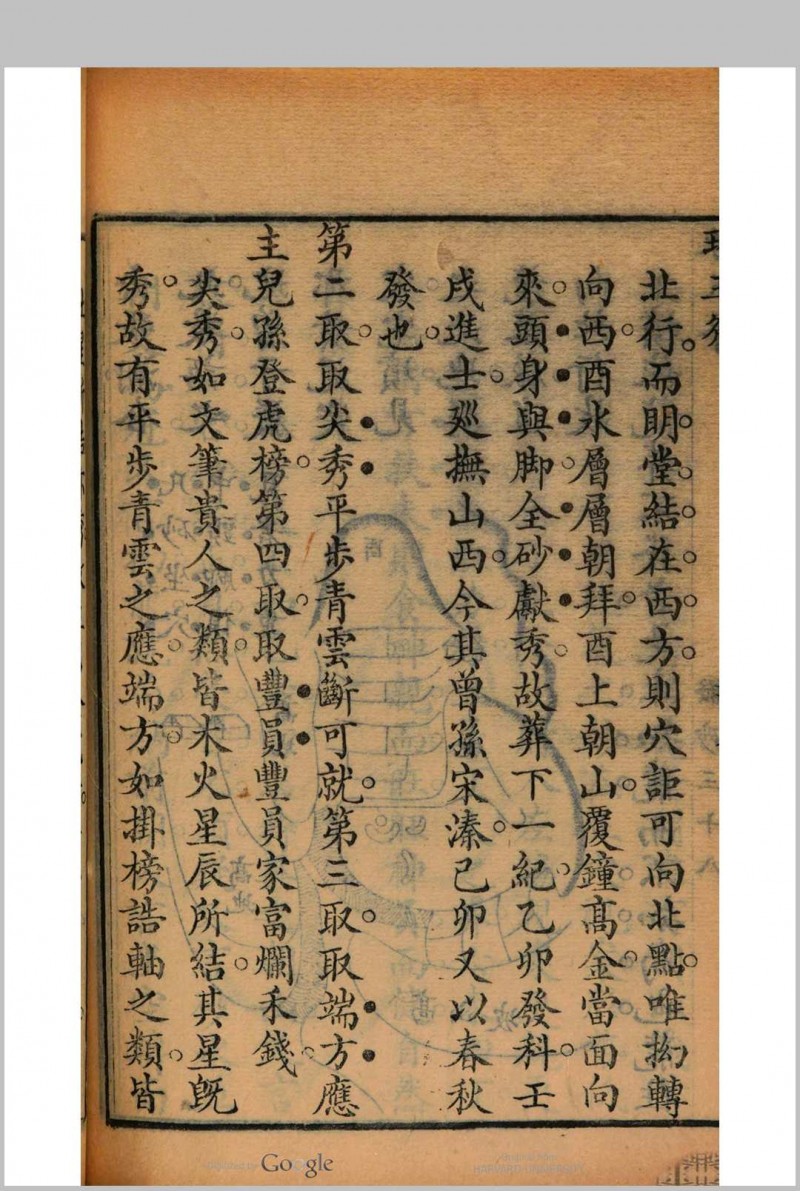 北行而明堂結在西方則穴詎可向北點唯拗轉
向西酉水層層朝拜酉上朝山覆鐘高金當面向
來頭身與脚全砂獻秀故葬下一紀乙卯發科壬
戌進士廵撫山西今其曾孫宋溱己卯又以春秋
發也
第二取取尖秀平步青雲斷可就第三取取端方應
主兒孫登虎榜第四取取豐員豐員家富爛禾錢
尖秀如文筆貴人之類皆木火星辰所結其星既
秀故有平步青雲之應端方如掛榜誥軸之類皆
Google